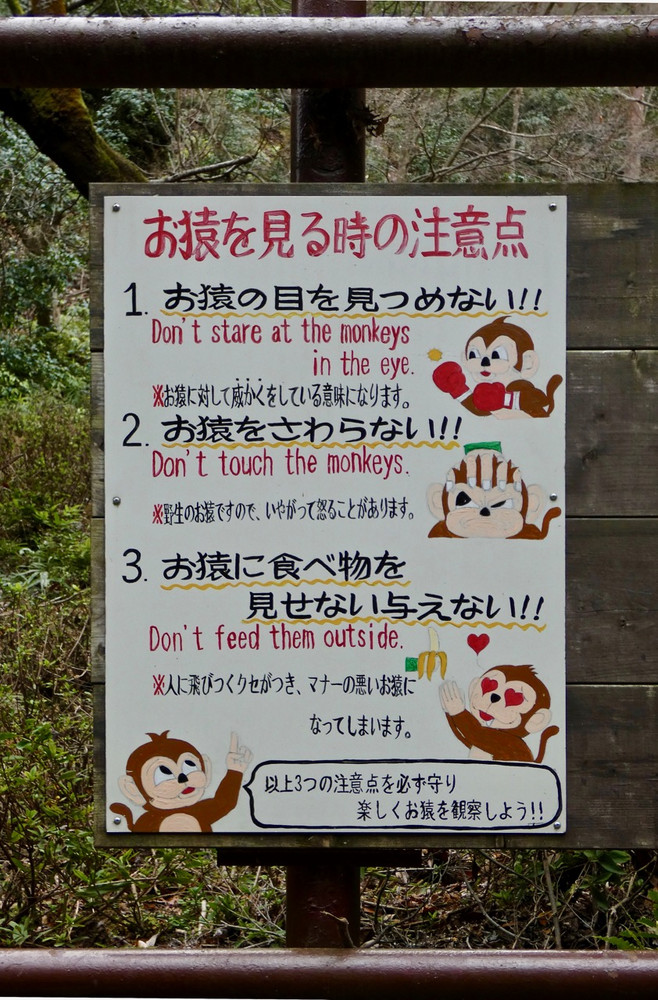 お猿を見る時の注意点
1. お猿の目を見つめない!!
Don't stare at the monkeys
in the eye.
※お猿に対して威かくをしている意味になります。
2. お猿をさわらない!!
Don't touch the monkeys.
※野生のお猿ですので、いやがって怒ることがあります。
3. お猿に食べ物を
見せない与えない!!
Don't feed them outside.
※人に飛びつくクセがつき、マナーの悪いお猿に
なってしまいます。
以上3つの注意点を必ず守り
楽しくお猿を観察しよう!!